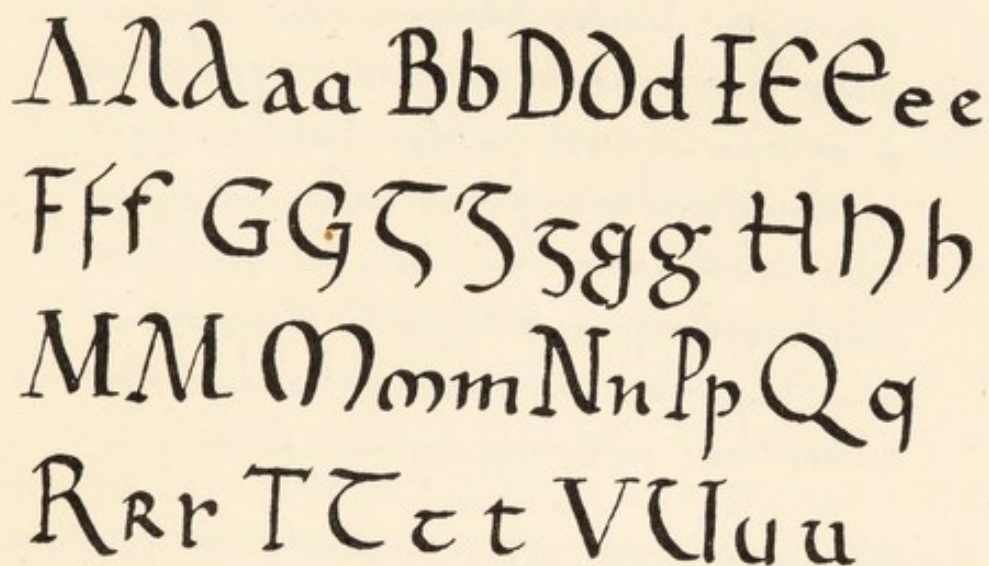 Λ Λ λ a a B b D D d E E E e e
F F f G G G G g g g H H h
M M M m m N n P p Q q
R R r T T t t V U u u